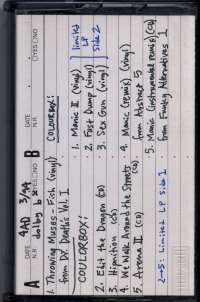 A
DATE
N.R.
YES NO
4AD 3/99
dolby b
B
DATE
N.R.
YES NO
1. Throwing Muses - Fish (vinyl)
from Dr. Death's Vol. I
COLOURBOX:
2. Edit the Dragon (CD)
3. Hipnition (CD)
4. We Walk Around the Streets (CD)
5. Arena II (CD)
2→5: Limited LP side 1
COLOURBOX:
1. Manic II (vinyl)
2. Fast Dump (vinyl)
3. Sex Gun (vinyl)
limited
LP
side 2
4. Manic (remix) (vinyl)
from Abstract 5
5. Manic (instrumental remix) (CD)
from Funky Alternatives 1